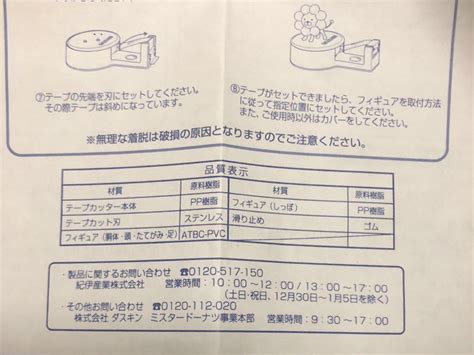 ⑦テープの先端を刃にセットしてください。
その際テープは斜めになっています。
⑧テープがセットできましたら、フィギュアを取付方法
に従って指定位置にセットしてください。
また、ご使用時以外はカバーをしてください。
※無理な着脱は破損の原因となりますのでご注意ください。
品質表示
材質 原料樹脂 材質 原料樹脂
テープカッター本体 PP樹脂 フィギュア(しっぽ) PP樹脂
テープカット刃 ステンレス 滑り止め ゴム
フィギュア(胴体・頭・たてがみ・足) ATBC-PVC
・製品に関するお問い合わせ ☎0120-517-150
紀伊産業株式会社 営業時間:10:00~12:00/13:00~17:00
(土日・祝日、12月30日~1月5日を除く)
・その他お問い合わせ ☎0120-112-020
株式会社 ダスキン ミスタードーナツ事業本部 営業時間:9:30~17:00